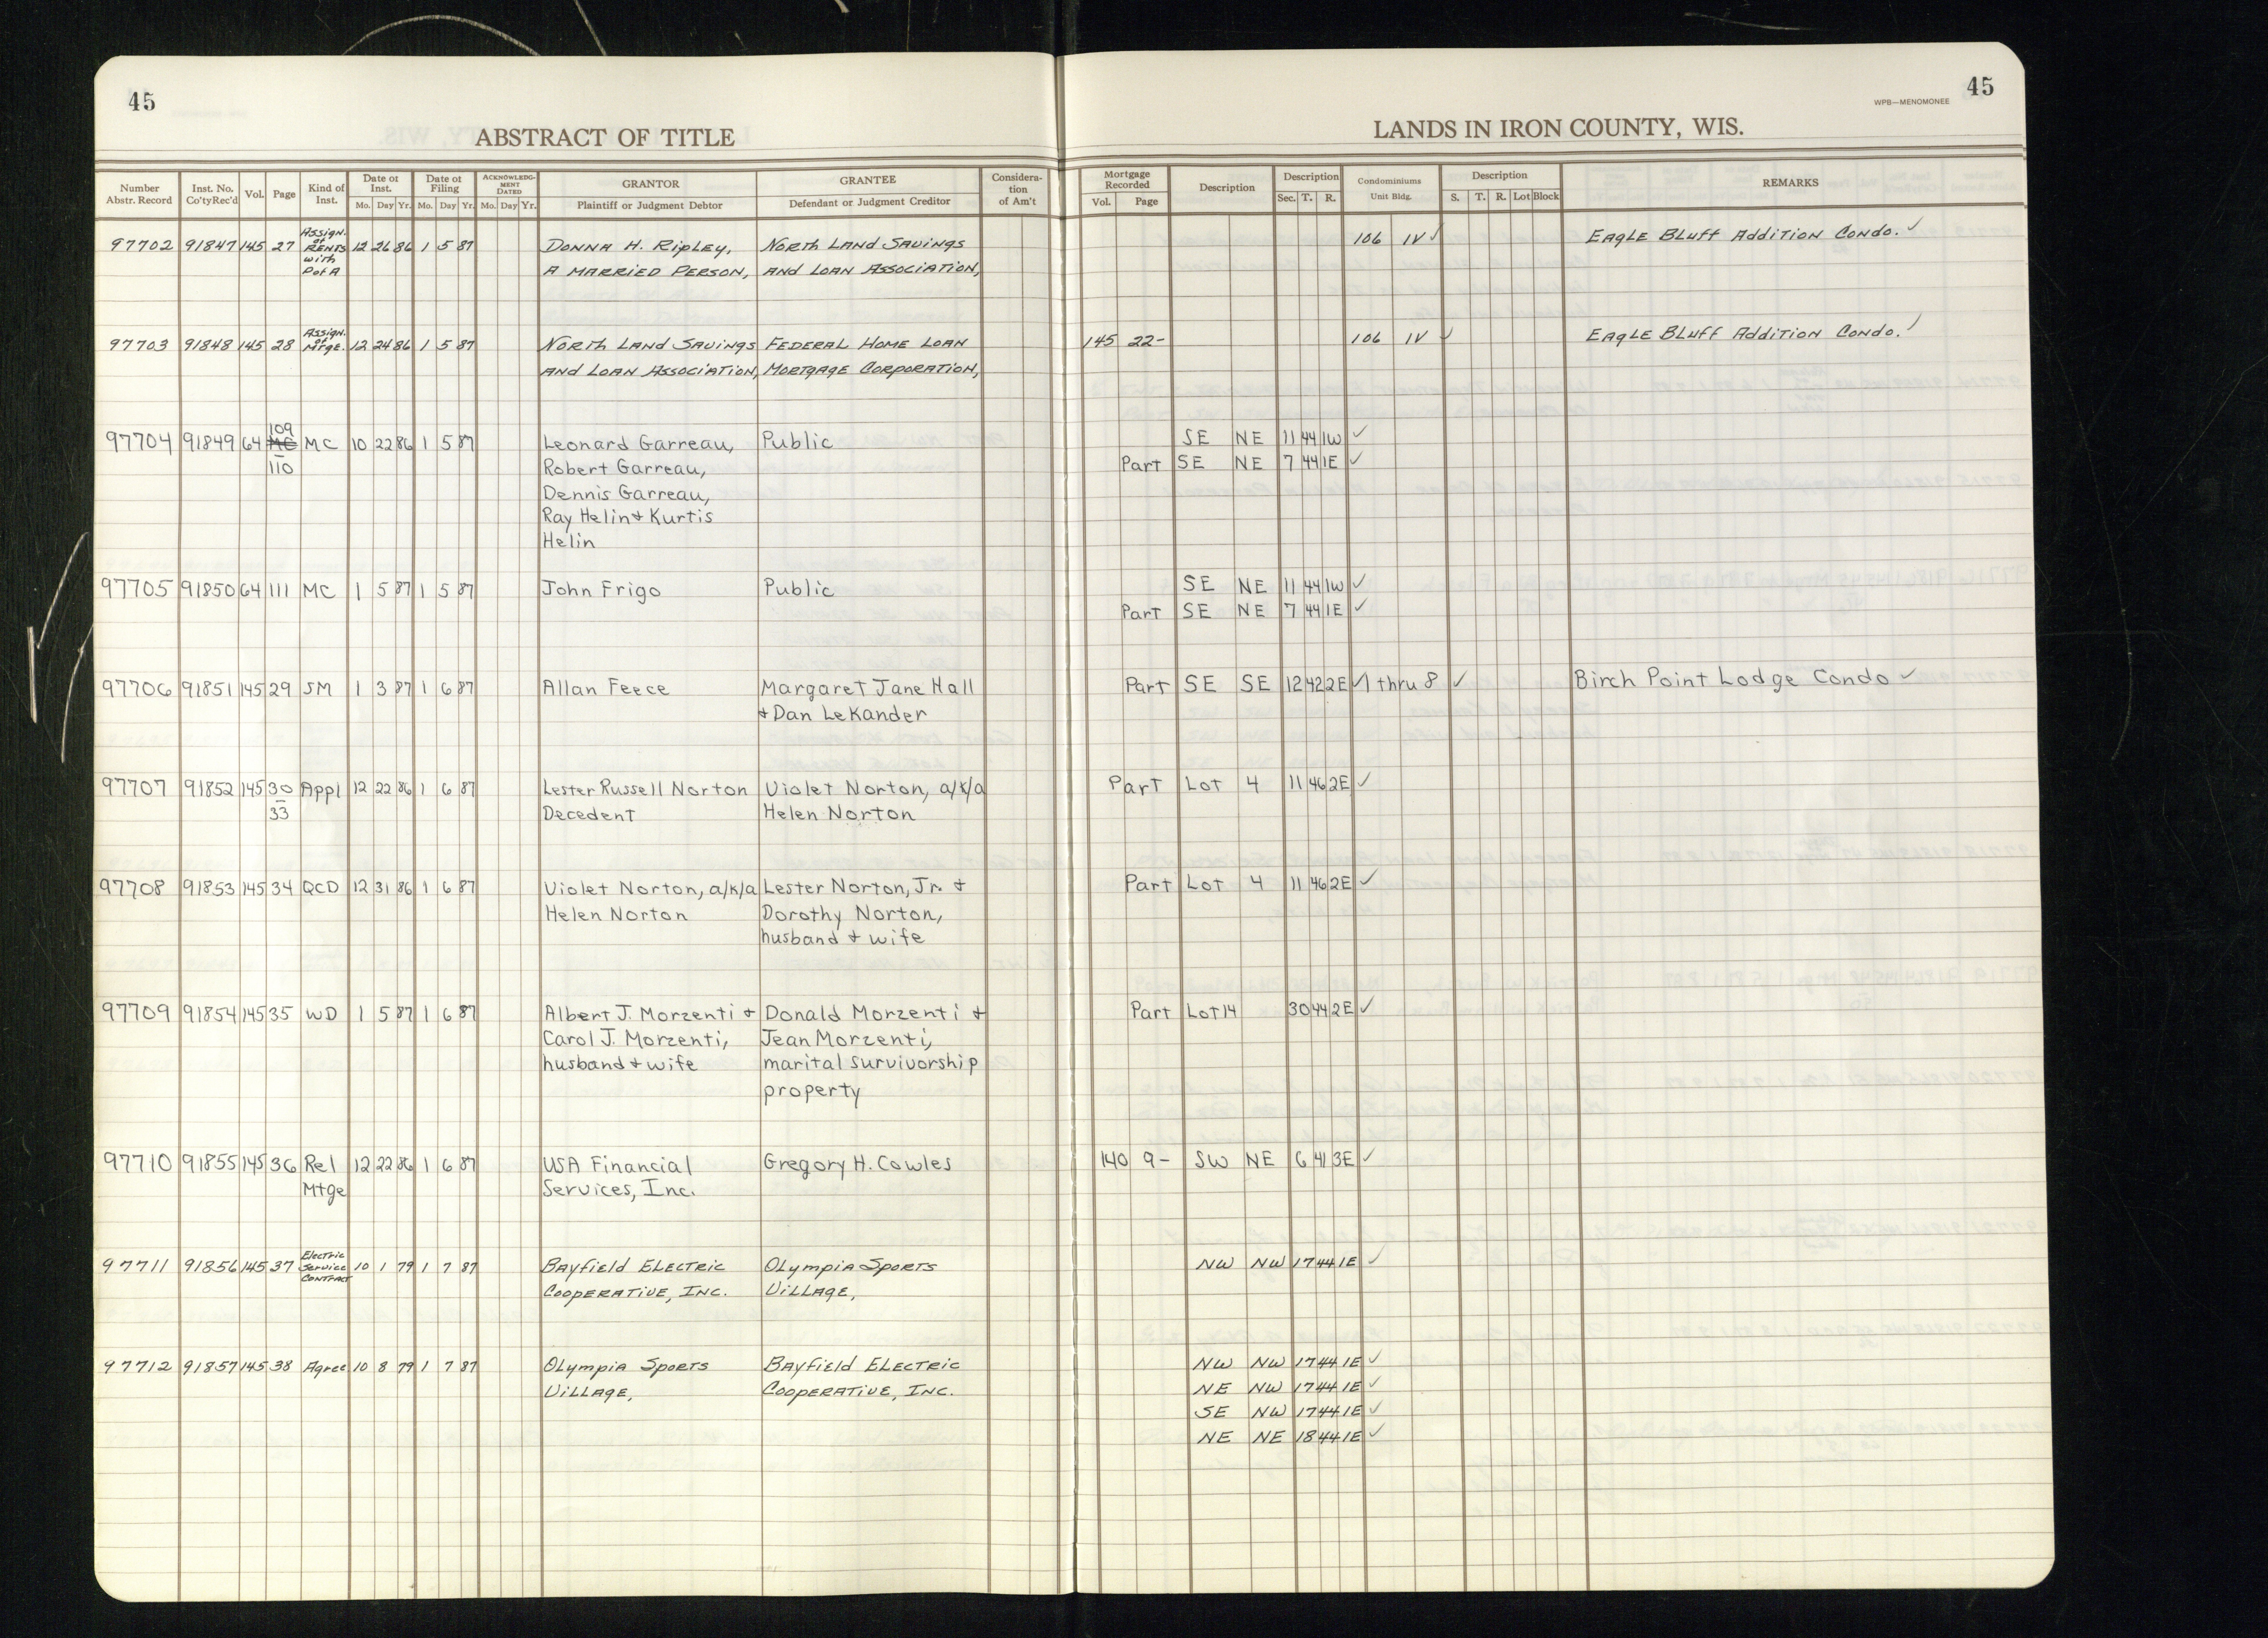 45
45
WPB—MENOMONEE
ABSTRACT OF TITLE
LANDS IN IRON COUNTY, WIS.
Number Abstr. Record | Inst. No. Co'ty Rec'd | Vol. | Page | Kind of Inst. | Date of Inst. Mo. Day Yr. | Date of Filing Mo. Day Yr. | ACKNOWLEDG-MENT DATED Mo. Day Yr. | GRANTOR Plaintiff or Judgment Debtor | GRANTEE Defendant or Judgment Creditor | Considera-tion of Am't | Mortgage Recorded Vol. Page | Description | Description Sec. T. R. | Condominiums Unit Bldg. | Description S. T. R. Lot Block | REMARKS
97702 91847 145 27 Assign. of RENTS with P of A 12 26 86 1 5 87 DONNA H. RipLEY, NORTH LAND SAVINGS 106 IV ✓ EAGLE BLUFF Addition Condo. ✓
A MARRIED PERSON, AND LOAN ASSOCIATION,
97703 91848 145 28 Assign. of MTGE. 12 24 86 1 5 87 NORTH LAND SAVINGS FEDERAL HOME LOAN 145 22- 106 IV ✓ EAGLE BLUFF Addition Condo. ✓
AND LOAN ASSOCIATION, MORTGAGE CORPORATION,
97704 91849 64 109 MC – 110 MC 10 22 86 1 5 87 Leonard Garreau, Public SE NE 11 44 1W ✓
Robert Garreau, Part SE NE 7 44 1E ✓
Dennis Garreau,
Ray Helin + Kurtis
Helin
97705 91850 64 111 MC 1 5 87 1 5 87 John Frigo Public SE NE 11 44 1W ✓
Part SE NE 7 44 1E ✓
97706 91851 145 29 SM 1 3 87 1 6 87 Allan Feece Margaret Jane Hall Part SE SE 12 42 2E ✓ 1 thru 8 ✓ Birch Point Lodge Condo ✓
+ Dan LeKander
97707 91852 145 30 – 33 Appl 12 22 86 1 6 87 Lester Russell Norton Violet Norton, a/k/a Part Lot 4 11 46 2E ✓
Decedent Helen Norton
97708 91853 145 34 QCD 12 31 86 1 6 87 Violet Norton, a/k/a Lester Norton, Jr. + Part Lot 4 11 46 2E ✓
Helen Norton Dorothy Norton,
husband + wife
97709 91854 145 35 WD 1 5 87 1 6 87 Albert J. Morzenti + Donald Morzenti + Part Lot 14 30 44 2E ✓
Carol J. Morzenti, Jean Morzenti,
husband + wife marital survivorship
property
97710 91855 145 36 Rel 12 22 86 1 6 87 USA Financial Gregory H. Cowles 140 9- SW NE 6 41 3E ✓
Mtge Services, Inc.
97711 91856 145 37 Electric Service CONTRACT 10 1 79 1 7 87 BAYfiELd ELECTRIC OLYmpia SPORTS NW NW 17 44 1E ✓
COOPERATIVE, INC. VILLAGE,
97712 91857 145 38 Agree 10 8 79 1 7 87 OLYmpia SPORTS BAYfiELd ELECTRIC NW NW 17 44 1E ✓
VILLAGE, COOPERATIVE, INC. NE NW 17 44 1E ✓
SE NW 17 44 1E ✓
NE NE 18 44 1E ✓